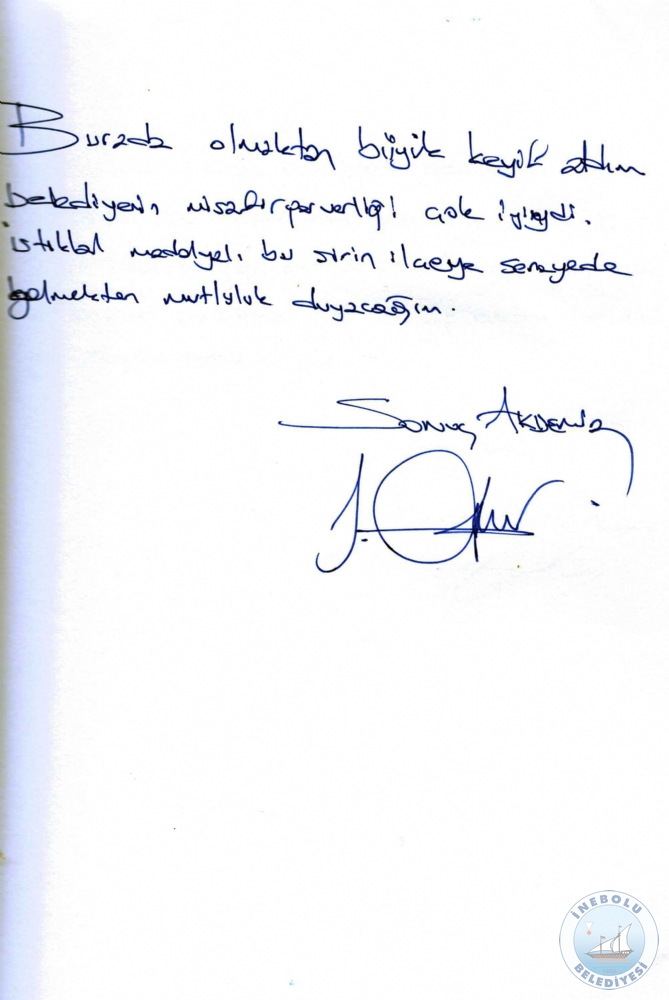 Burada olmaktan büyük keyif aldım
belediyenin misafirperverliği çok iyiydi.
İstiklal madalyalı bu şirin ilçeye seneyede
gelmekten mutluluk duyacağım.
Sonuç AKDENİZ
İNEBOLU
BELEDİYESİ